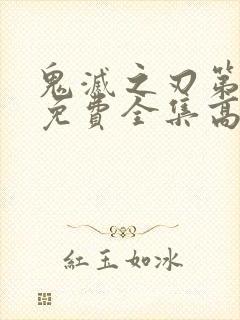 鬼滅之刃第
免費全集高
紅玉如冰